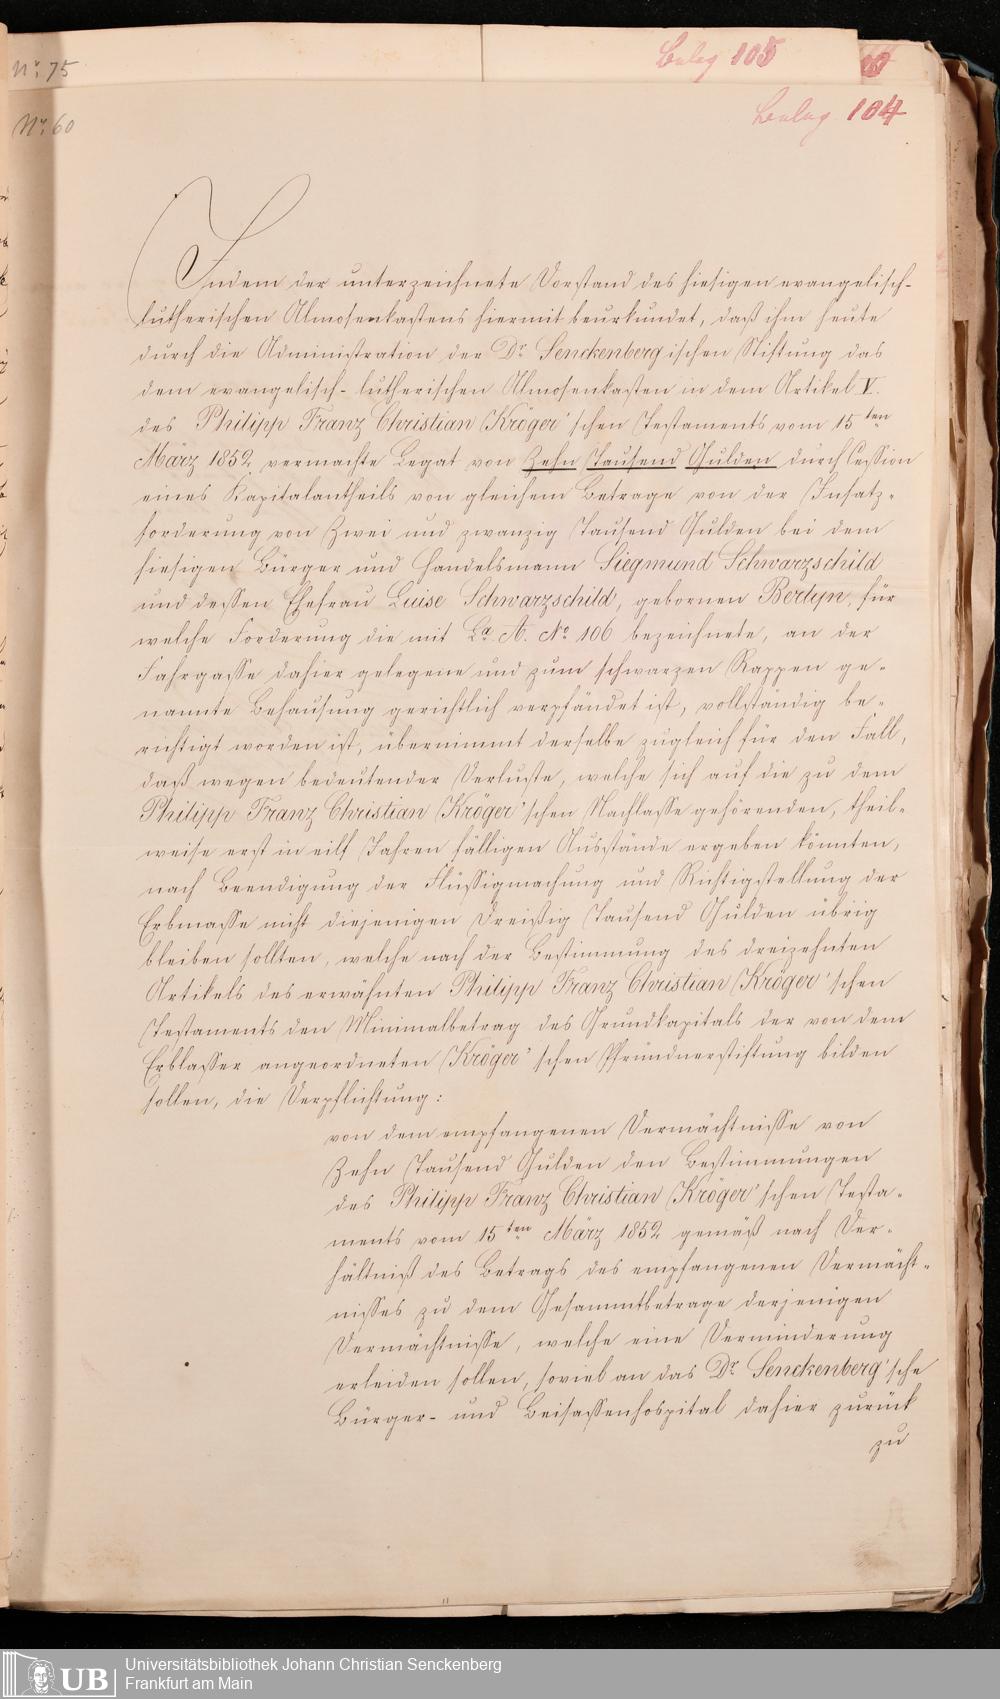 No. 75
Beleg 105
No. 60
Beleg 104
Indem der unterzeichnete Vorstand des hiesigen evangelisch-
lutherischen Almosenkastens hiermit beurkundet, daß ihm heute
durch die Administration der Dr. Senckenbergischen Stiftung das
dem evangelisch-lutherischen Almosenkasten in dem Artikel V.
des Philipp Franz Christian Kröger'schen Testaments vom 15ten
März 1852 vermachte Legat von Zehn Tausend Gulden durch Cession
eines Kapitalantheils von gleichem Betrage von der Insatz-
forderung von Zwei und zwanzig Tausend Gulden bei dem
hiesigen Bürger und Handelsmann Siegmund Schwarzschild
und dessen Ehefrau Luise Schwarzschild, gebornen Berlyn, für
welche Forderung die mit La. A. No. 106 bezeichnete, an der
Fahrgasse dahier gelegene und zum schwarzen Rappen ge-
nannte Behausung gerichtlich verpfändet ist, vollständig be-
richtigt worden ist, übernimmt derselbe zugleich für den Fall,
daß wegen bedeutender Verluste, welche sich auf die zu dem
Philipp Franz Christian Kröger'schen Nachlasse gehörenden, theil-
weise erst in eilf Jahren fälligen Ausstände ergeben könnten,
nach Beendigung der Flüssigmachung und Richtigstellung der
Erbmasse nicht diejenigen Dreißig Tausend Gulden übrig
bleiben sollten, welche nach der Bestimmung des dreizehnten
Artikels des erwähnten Philipp Franz Christian Kröger'schen
Testaments den Minimalbetrag des Grundkapitals der von dem
Erblasser angeordneten Kröger'schen Pfründnerstiftung bilden
sollen, die Verpflichtung:
von dem empfangenen Vermächtnisse von
Zehn Tausend Gulden den Bestimmungen
des Philipp Franz Christian Kröger'schen Testa-
ments vom 15ten März 1852 gemäß nach Ver-
hältniß des Betrags des empfangenen Vermächt-
nisses zu dem Gesammtbetrage derjenigen
Vermächtnisse, welche eine Verminderung
erleiden sollen, soviel an das Dr. Senckenberg'sche
Bürger- und Beisassenhospital dahier zurück
zu
UB
Universitätsbibliothek Johann Christian Senckenberg
Frankfurt am Main